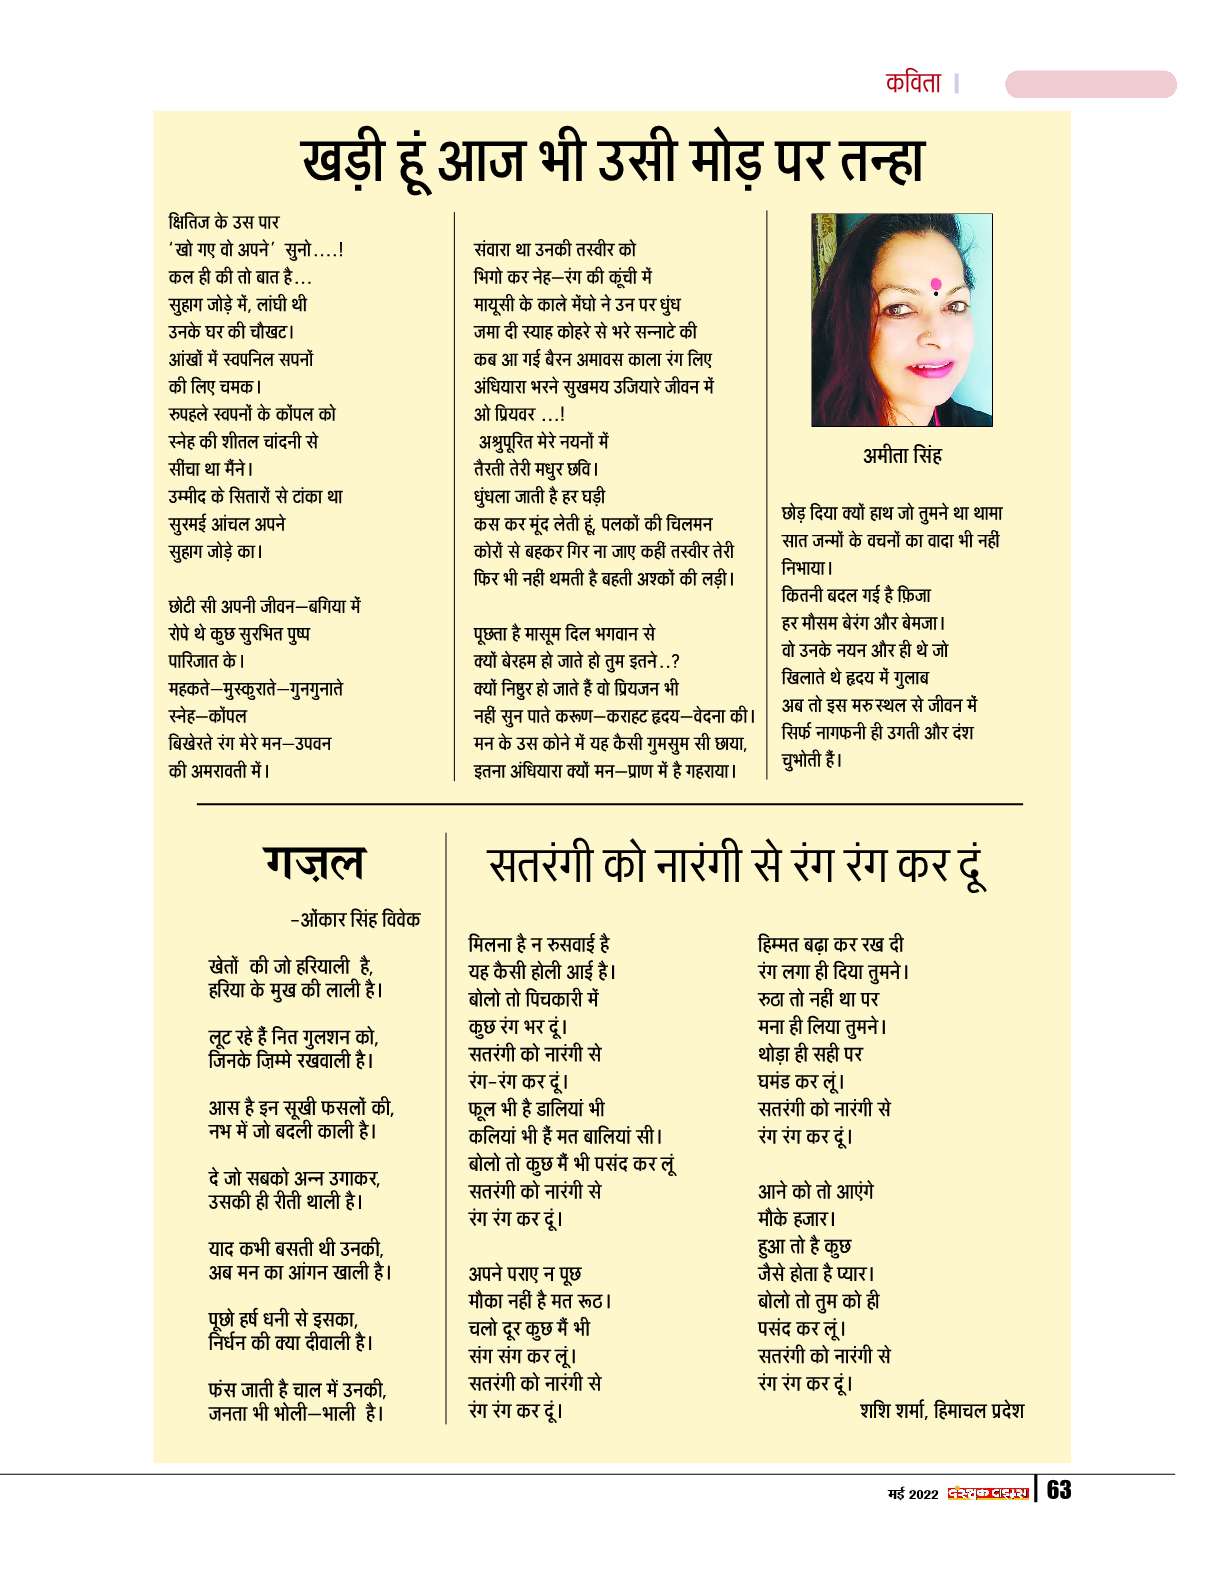 कविता
खड़ी हूं आज भी उसी मोड़ पर तन्हा
क्षितिज के उस पार
‘खो गए वो अपने’ सुनो....!
कल ही की तो बात है...
सुहाग जोड़े में, लांघी थी
उनके घर की चौखट।
आंखों में स्वपनिल सपनों
की लिए चमक।
रुपहले स्वपनों के कोंपल को
स्नेह की शीतल चांदनी से
सींचा था मैंने।
उम्मीद के सितारों से टांका था
सुरमई आंचल अपने
सुहाग जोड़े का।
छोटी सी अपनी जीवन–बगिया में
रोपे थे कुछ सुरभित पुष्प
पारिजात के।
महकते–मुस्कुराते–गुनगुनाते
स्नेह–कोंपल
बिखेरते रंग मेरे मन–उपवन
की अमरावती में।
संवारा था उनकी तस्वीर को
भिगो कर नेह–रंग की कूंची में
मायूसी के काले मेंघो ने उन पर धुंध
जमा दी स्याह कोहरे से भरे सन्नाटे की
कब आ गई बैरन अमावस काला रंग लिए
अंधियारा भरने सुखमय उजियारे जीवन में
ओ प्रियवर ...!
अश्रुपूरित मेरे नयनों में
तैरती तेरी मधुर छवि।
धुंधला जाती है हर घड़ी
कस कर मूंद लेती हूं, पलकों की चिलमन
कोरों से बहकर गिर ना जाए कहीं तस्वीर तेरी
फिर भी नहीं थमती है बहती अश्कों की लड़ी।
पूछता है मासूम दिल भगवान से
क्यों बेरहम हो जाते हो तुम इतने..?
क्यों निष्ठुर हो जाते हैं वो प्रियजन भी
नहीं सुन पाते करूण–कराहट हृदय–वेदना की।
मन के उस कोने में यह कैसी गुमसुम सी छाया,
इतना अंधियारा क्यों मन–प्राण में है गहराया।
अमीता सिंह
छोड़ दिया क्यों हाथ जो तुमने था थामा
सात जन्मों के वचनों का वादा भी नहीं
निभाया।
कितनी बदल गई है फ़िजा
हर मौसम बेरंग और बेमजा।
वो उनके नयन और ही थे जो
खिलाते थे हृदय में गुलाब
अब तो इस मरु स्थल से जीवन में
सिर्फ नागफनी ही उगती और दंश
चुभोती हैं।
गज़ल
-ओंकार सिंह विवेक
खेतों की जो हरियाली है,
हरिया के मुख की लाली है।
लूट रहे हैं नित गुलशन को,
जिनके ज़िम्मे रखवाली है।
आस है इन सूखी फसलों की,
नभ में जो बदली काली है।
दे जो सबको अन्न उगाकर,
उसकी ही रीती थाली है।
याद कभी बसती थी उनकी,
अब मन का आंगन खाली है।
पूछो हर्ष धनी से इसका,
निर्धन की क्या दीवाली है।
फंस जाती है चाल में उनकी,
जनता भी भोली–भाली है।
सतरंगी को नारंगी से रंग रंग कर दूं
मिलना है न रुसवाई है
यह कैसी होली आई है।
बोलो तो पिचकारी में
कुछ रंग भर दूं।
सतरंगी को नारंगी से
रंग-रंग कर दूं।
फूल भी है डालियां भी
कलियां भी हैं मत बालियां सी।
बोलो तो कुछ मैं भी पसंद कर लूं
सतरंगी को नारंगी से
रंग रंग कर दूं।
अपने पराए न पूछ
मौका नहीं है मत रूठ।
चलो दूर कुछ मैं भी
संग संग कर लूं।
सतरंगी को नारंगी से
रंग रंग कर दूं।
हिम्मत बढ़ा कर रख दी
रंग लगा ही दिया तुमने।
रुठा तो नहीं था पर
मना ही लिया तुमने।
थोड़ा ही सही पर
घमंड कर लूं।
सतरंगी को नारंगी से
रंग रंग कर दूं।
आने को तो आएंगे
मौके हजार।
हुआ तो है कुछ
जैसे होता है प्यार।
बोलो तो तुम को ही
पसंद कर लूं।
सतरंगी को नारंगी से
रंग रंग कर दूं।
शशि शर्मा, हिमाचल प्रदेश
मई 2022
63